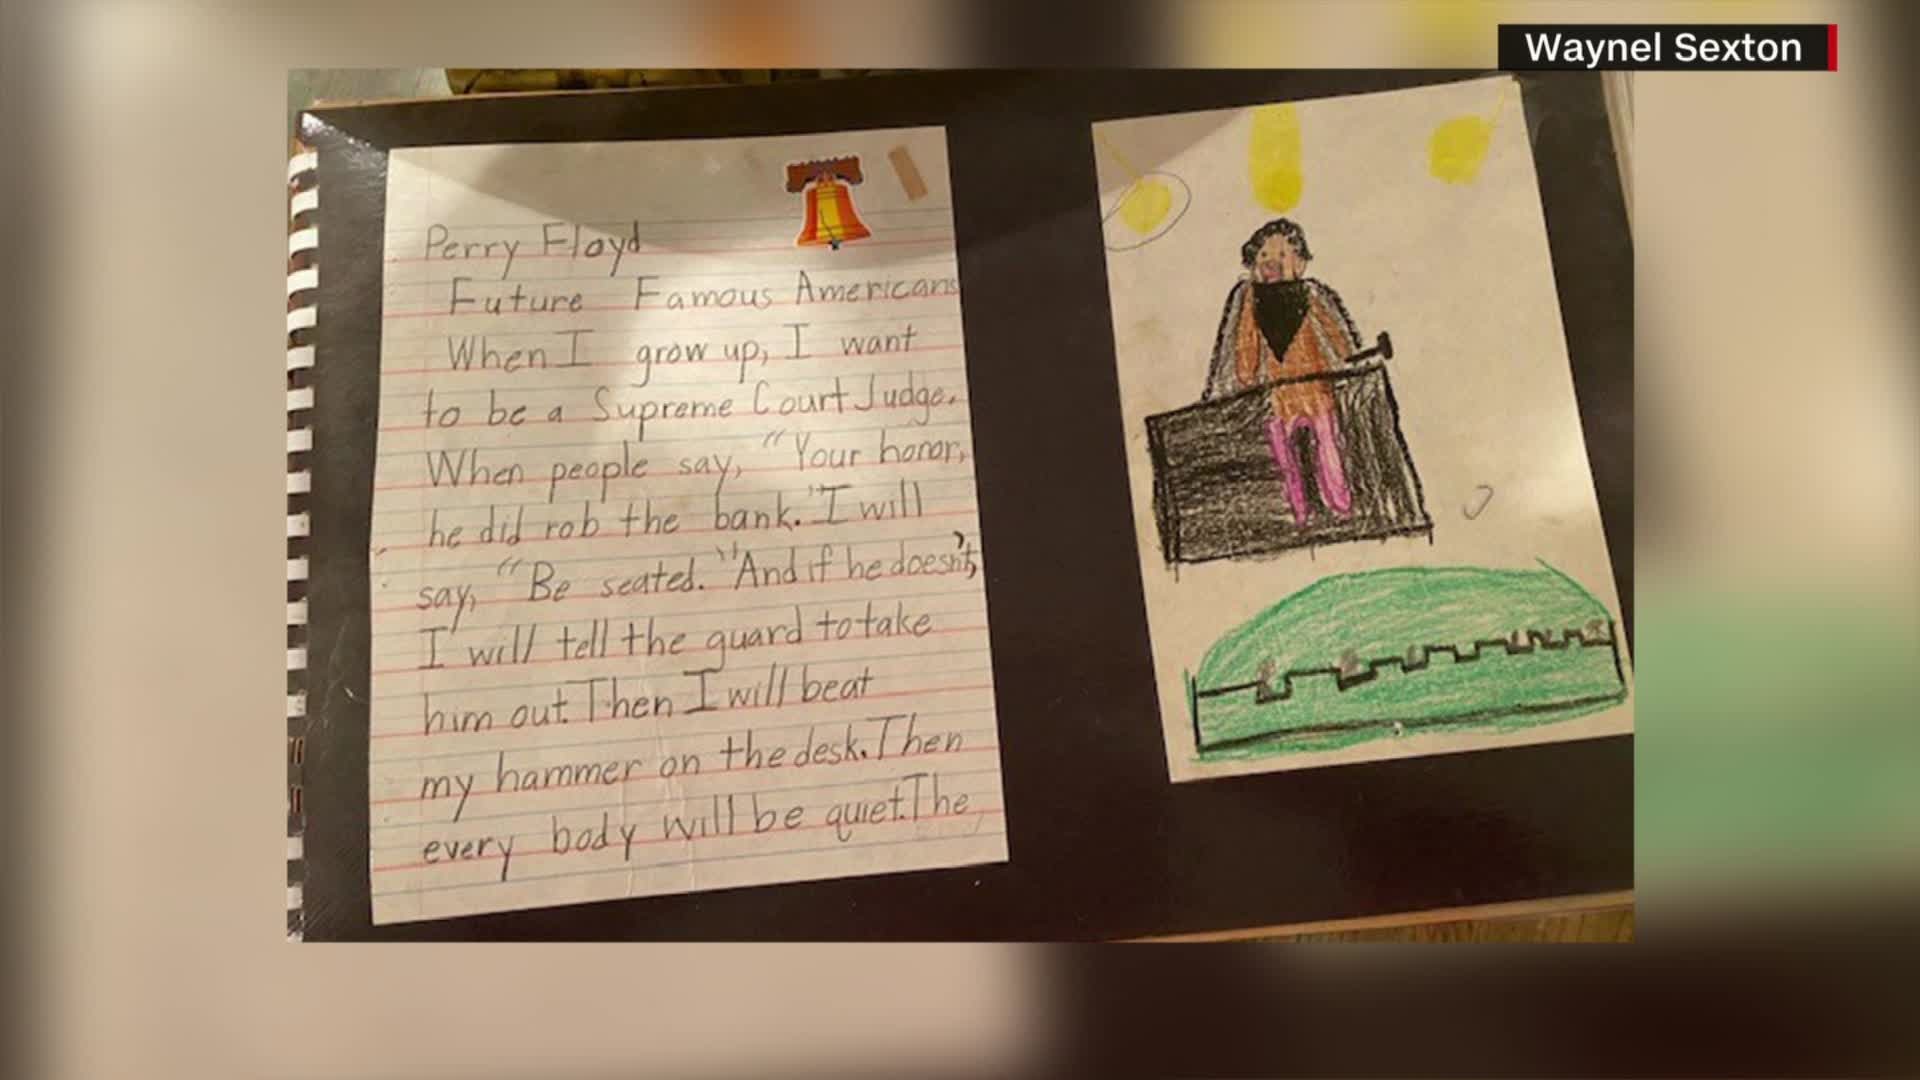 Waynel Sexton
Perry Floyd
Future Famous Americans
When I grow up, I want
to be a Supreme Court Judge.
When people say, "Your honor,
he did rob the bank." I will
say, "Be seated." And if he doesn't,
I will tell the guard to take
him out. Then I will beat
my hammer on the desk. Then
every body will be quiet. The